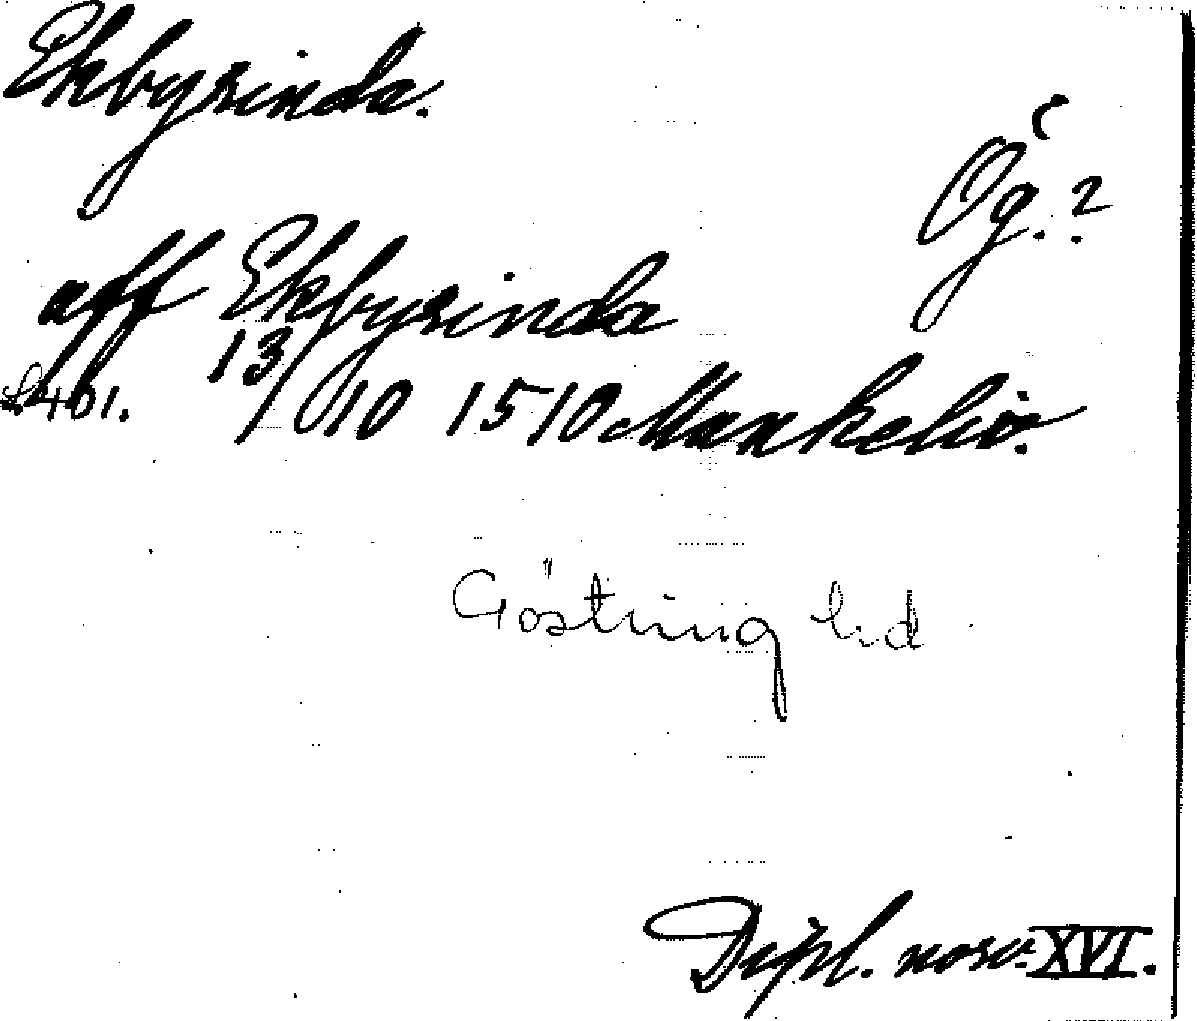 Ekbyrinda.
Ög.?
aff Ekbyrinda
s. 401. 13/10 1510 Mankeliv.
Göstring hd
Dipl. norv. XVI.